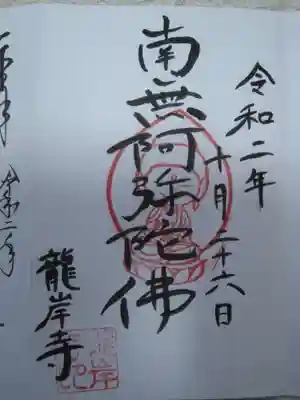 令和二年
十月二十六日
南無阿弥陀佛
龍岸寺